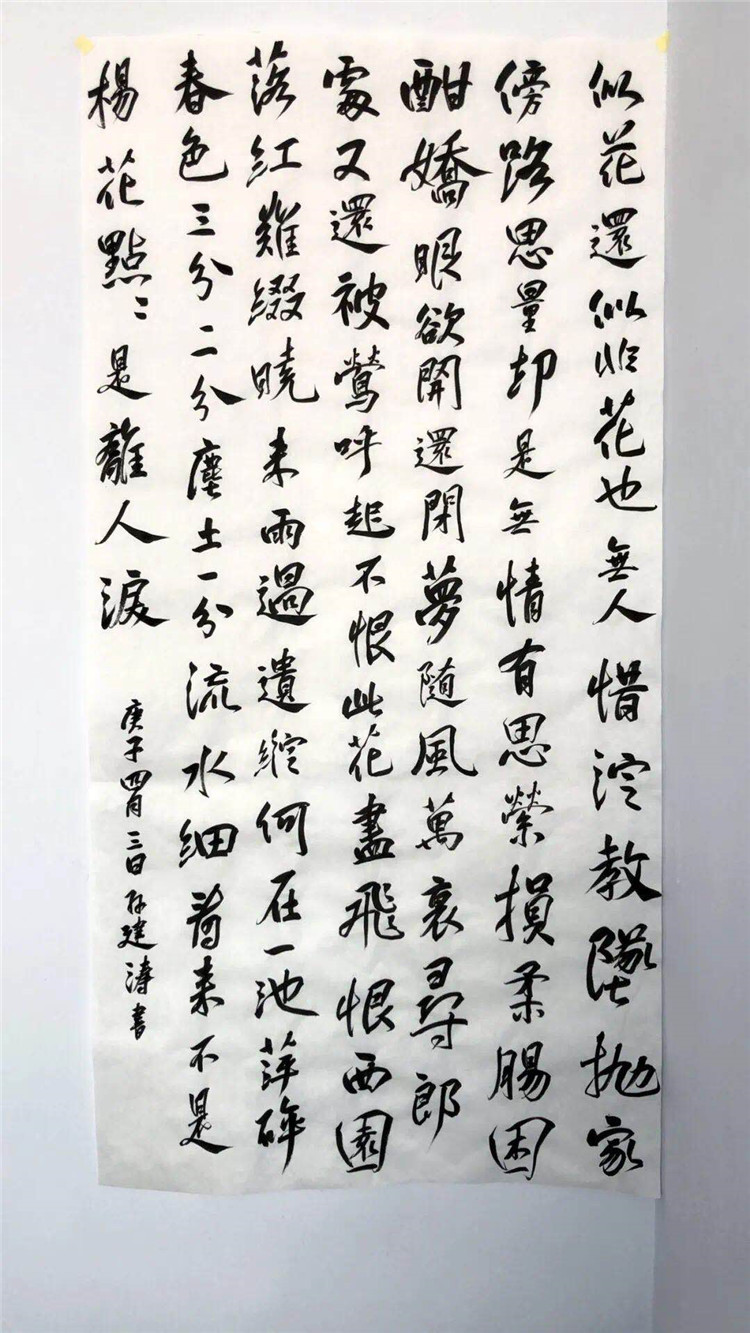 似花還似非花也無人惜從教墜拋家
傍路思量却是無情有思縈損柔腸困
酣嬌眼欲開還閉夢随風萬裏尋郎
處又還被鶯呼起不恨此花盡飛恨西園
落紅難綴曉来雨過遺縱何在一池萍碎
春色三分二分塵土一分流水細看来不是
楊花點〻是離人淚
庚子四月三日孫建濤書